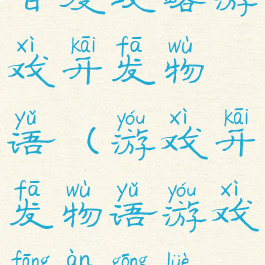 首发攻略游
xì kāi fā wù
戏开发物
yǔ yóu xì kāi
语（游戏开
fā wù yǔ yóu xì
发物语游戏
fāng àn gōng lüè